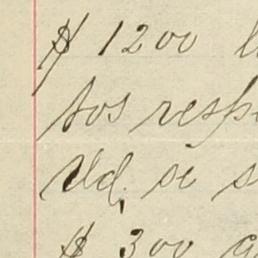 $ 1200 l
tos resp
Ud. si s
$ 300 g